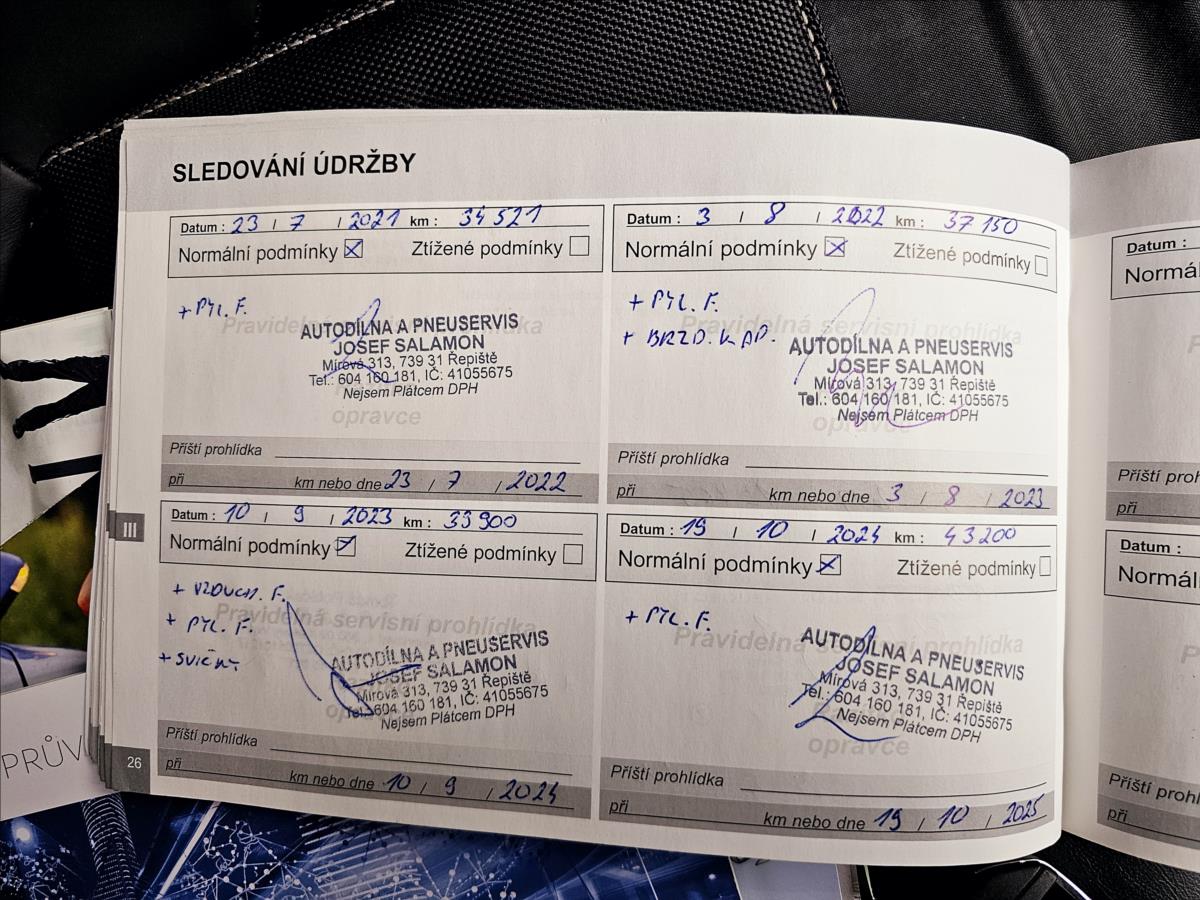 SLEDOVÁNÍ ÚDRŽBY
Datum : 23 / 7 / 2021 km : 34 521
Normální podmínky ☒ Ztížené podmínky ☐
+ PYL. F.
Pravidelná servisní prohlídka
AUTODÍLNA A PNEUSERVIS
JOSEF SALAMON
Mírová 313, 739 31 Řepiště
Tel.: 604 160 181, IČ: 41055675
Nejsem Plátcem DPH
opravce
Příští prohlídka
při km nebo dne 23 / 7 / 2022
Datum : 3 / 8 / 2022 km : 37 150
Normální podmínky ☒ Ztížené podmínky ☐
+ PYL. F.
+ BRZD. KAP.
Pravidelná servisní prohlídka
AUTODÍLNA A PNEUSERVIS
JOSEF SALAMON
Mírová 313, 739 31 Řepiště
Tel.: 604 160 181, IČ: 41055675
Nejsem Plátcem DPH
opravce
Příští prohlídka
při km nebo dne 3 / 8 / 2023
III
Datum : 10 / 9 / 2023 km : 39900
Normální podmínky ☒ Ztížené podmínky ☐
+ VZDUCH. F.
+ PYL. F.
+ SVÍČKY
Pravidelná servisní prohlídka
AUTODÍLNA A PNEUSERVIS
JOSEF SALAMON
Mírová 313, 739 31 Řepiště
Tel.: 604 160 181, IČ: 41055675
Nejsem Plátcem DPH
Příští prohlídka
při km nebo dne 10 / 9 / 2024
26
Datum : 19 / 10 / 2024 km : 43200
Normální podmínky ☒ Ztížené podmínky ☐
+ PYL. F.
Pravidelná servisní prohlídka
AUTODÍLNA A PNEUSERVIS
JOSEF SALAMON
Mírová 313, 739 31 Řepiště
Tel.: 604 160 181, IČ: 41055675
Nejsem Plátcem DPH
opravce
Příští prohlídka
při km nebo dne 19 / 10 / 2025
Datum :
Normál
Příští proh
při
Datum :
Normál
Příští prohl
při
PRŮV